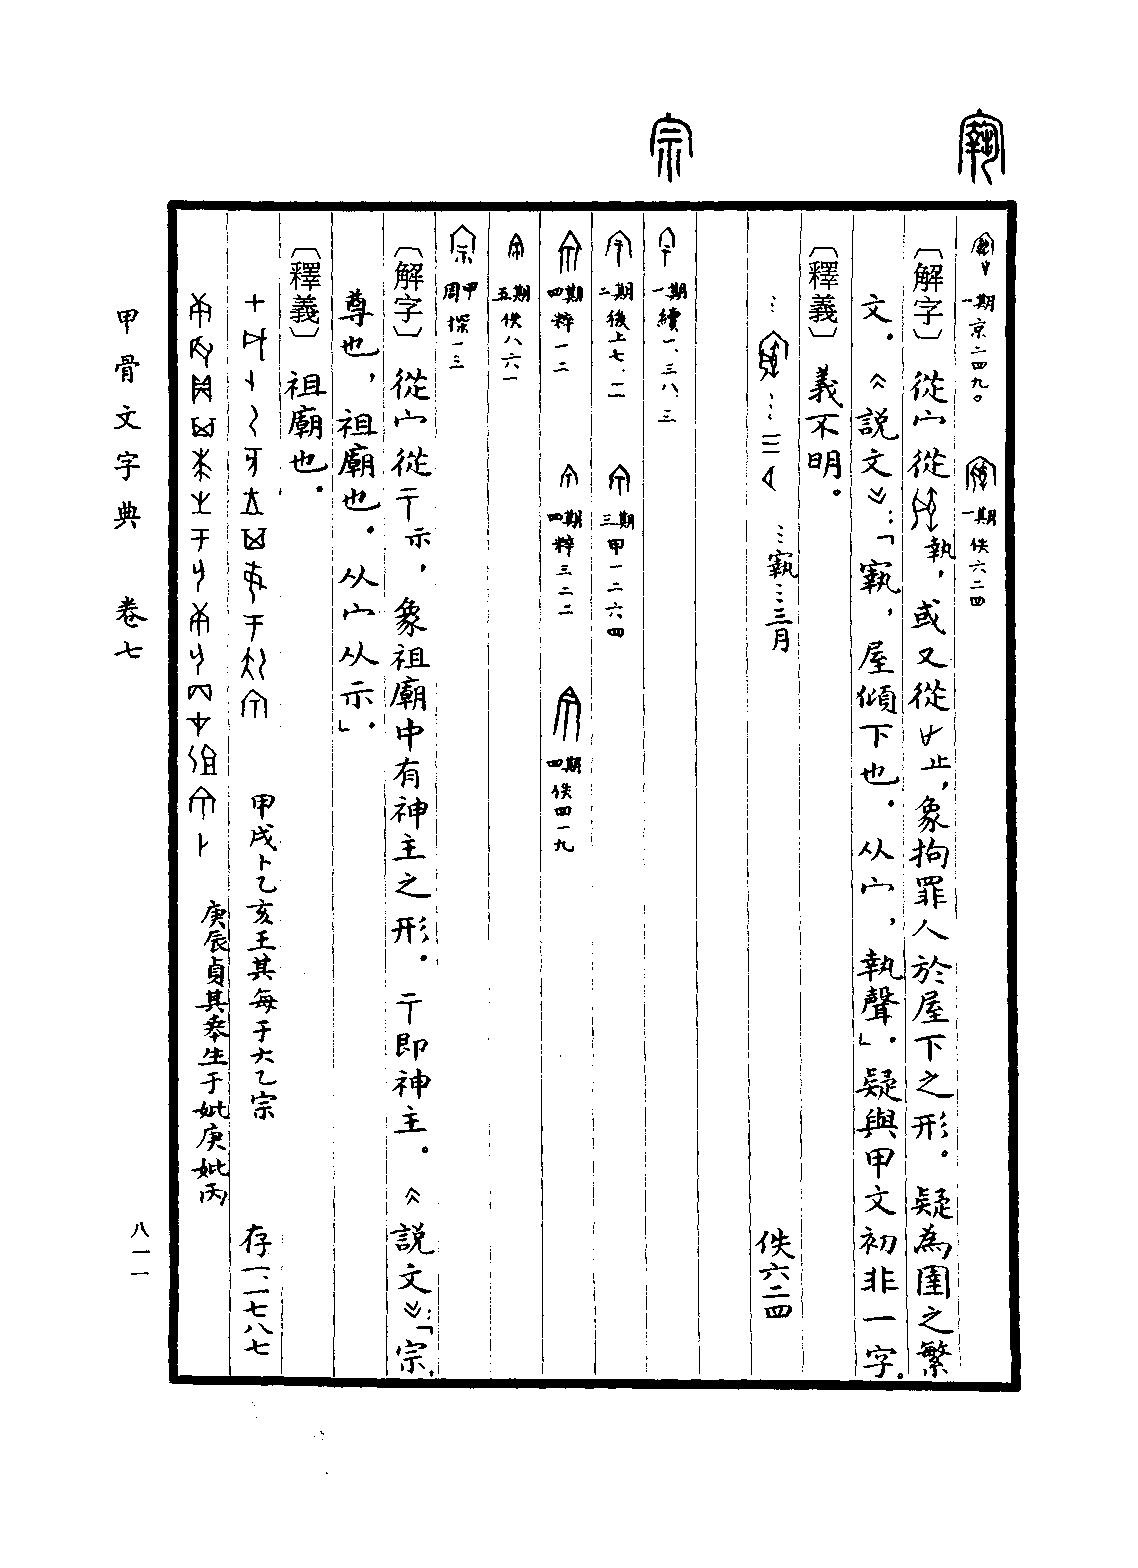 㝪
宗
一期京二四九〇
一期佚六二四
〔解字〕從宀從執，或又從止，象拘罪人於屋下之形。疑為圉之繁
文。《説文》：「㝪，屋傾下也。从宀，執聲」。疑與甲文初非一字。
〔釋義〕義不明。
…㝪…三月
佚六二四
一期續一、三八、三
二期後上七、一一
三期甲一二六四
四期粹一二
四期粹三二二
四期佚四一九
五期佚八六一
周甲探一三
〔解字〕從宀從示，象祖廟中有神主之形。即神主。《説文》：「宗，
尊也，祖廟也。从宀从示」。
〔釋義〕祖廟也。
甲戌卜乙亥王其每于大乙宗
存一、一七八七
庚辰貞其𠦪生于妣庚妣丙
甲骨文字典 卷七
八一一